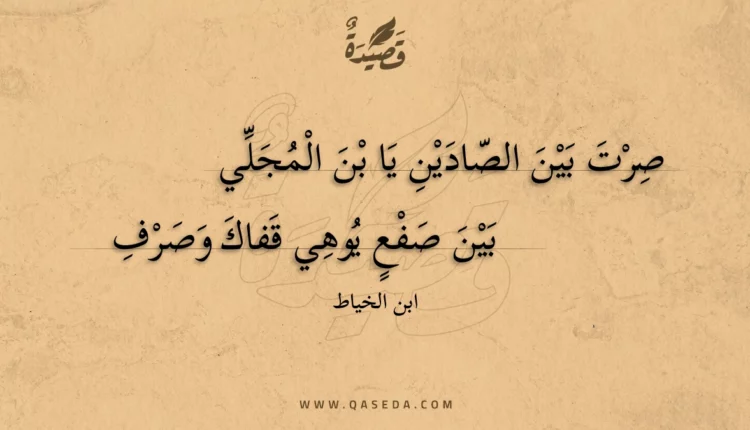 قَصِيْدَةٌ
صِرْتَ بَيْنَ الصّادَيْنِ يَا بْنَ الْمُجَلِّي
بَيْنَ صَفْعٍ يُوهِي قَفاكَ وَصَرْفِ
ابن الخياط
WWW.QASEDA.COM